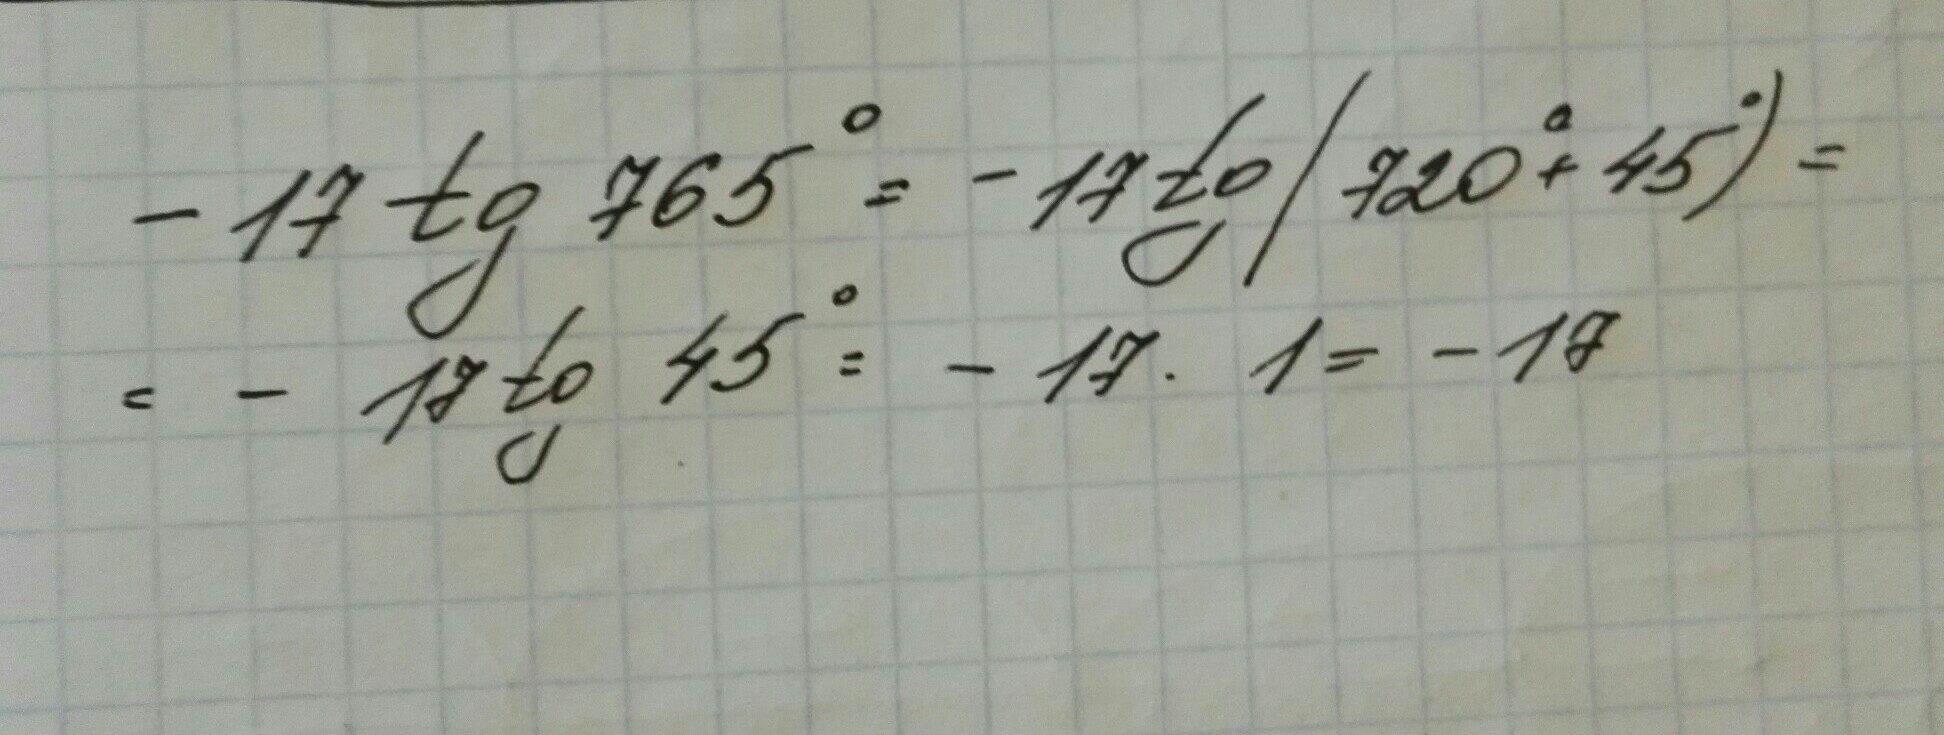 - 17 tg 765° = - 17 tg (720° + 45°) =
= - 17 tg 45° = - 17 · 1 = - 17